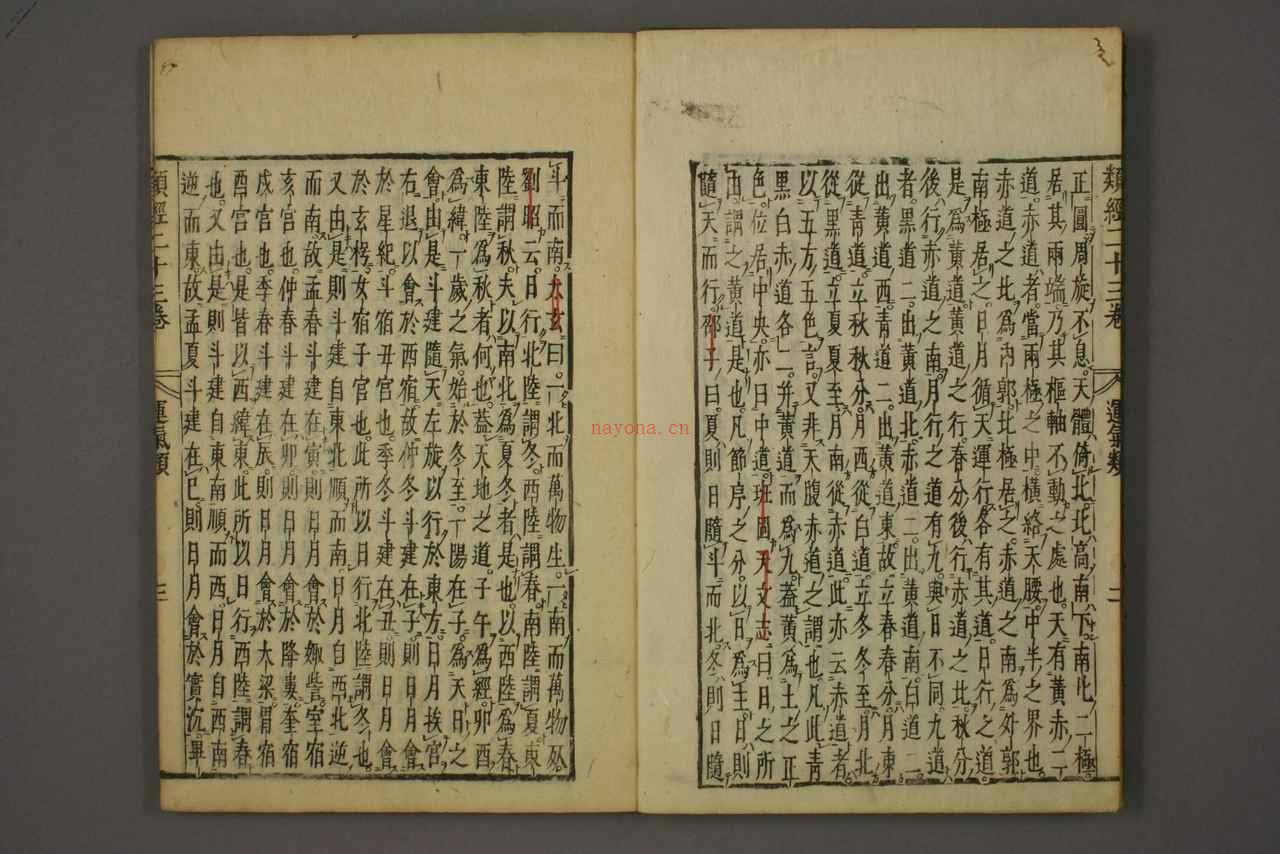 類經二十三卷 運氣類 二
正圓周旋不息天體倚北北高南下南北二極
居其兩端乃其樞軸不動之處也天有黃赤二
道赤道者當兩極之中橫絡天腰中半之界也
赤道之北爲內郭北極居之赤道之南爲外郭
南極居之日月循天運行各有其道日行之道
是爲黃道黃道之行春分後行赤道之北秋分
後行赤道之南月行之道有九與日不同九道
者黑道二出黃道北赤道二出黃道南白道二
出黃道西青道二出黃道東故立春春分月東
從青道立秋秋分月西從白道立冬冬至月北
從黑道立夏夏至月南從赤道此亦云赤道者
以五方五色言又非天腹赤道之謂也凡此青
黑白赤道各二并黃道而爲九蓋黃爲土之正
色位居中央亦曰中道班固天文志曰日之所
由謂之黃道是也凡節序之分以日爲主日則
隨天而行邵子曰夏則日隨斗而北冬則日隨
斗而南太玄曰一北而萬物生一南而萬物死
劉昭云日行北陸謂冬西陸謂春南陸謂夏東
陸謂秋夫以南北爲夏冬者是也以西陸爲春
東陸爲秋者何也蓋天地之道子午爲經卯酉
爲緯一歲之氣始於冬至一陽在子爲天日之
會由是斗建隨天左旋以行於東方日月挨宮
右退以會於西宿故仲冬斗建在子則日月會
於星紀斗宿丑宮也季冬斗建在丑則日月會
於玄枵女宿子宮也此所以日行北陸謂冬也
又由是則斗建自東北順而南日月自西北逆
而南故孟春斗建在寅則日月會於娵訾室宿
亥宮也仲春斗建在卯則日月會於降婁奎宿
戌宮也季春斗建在辰則日月會於大梁胃宿
酉宮也是皆以西緯東此所以日行西陸謂春
也又由是則斗建自東南順而西日月自西南
逆而東故孟夏斗建在巳則日月會於實沉畢
類經二十三卷 運氣類 三
nayona.cn